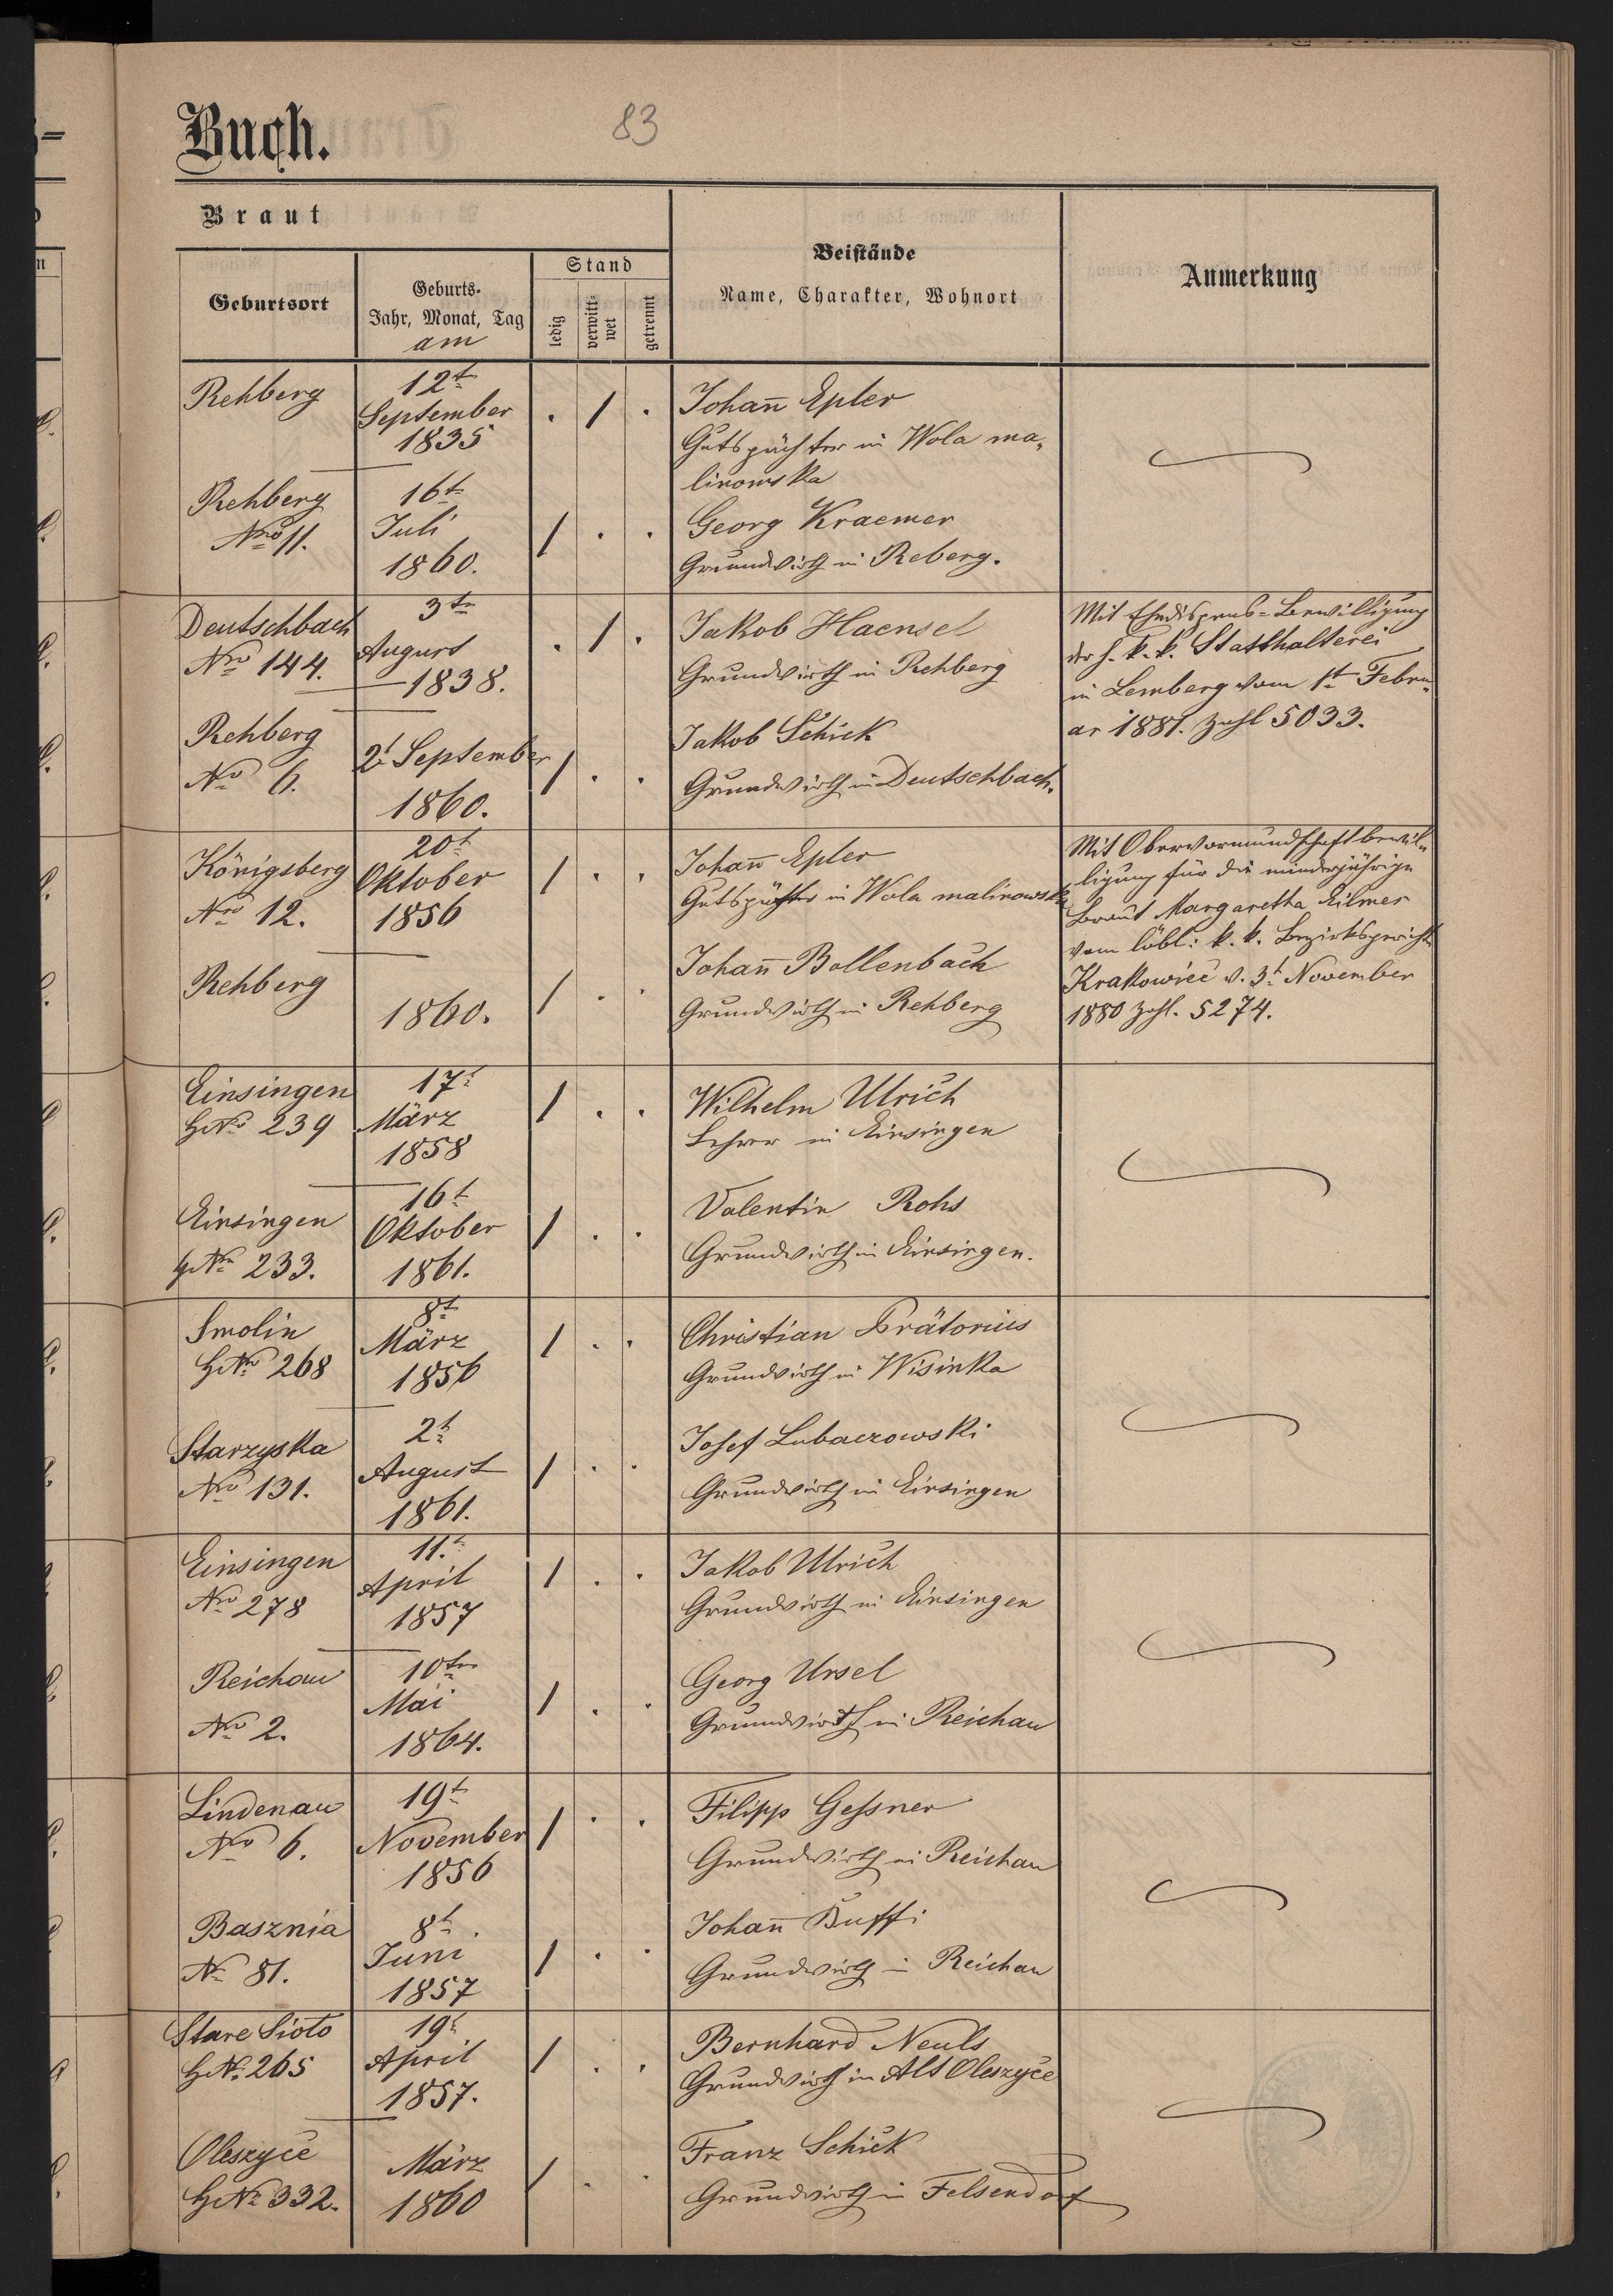 Buch.
83
Braut
Beistände
Name, Charakter, Wohnort
Anmerkung
Geburtsort
Geburts-
Jahr, Monat, Tag
am
Stand
ledig
verwitt-
wet
getrennt
Rehberg
12t
September
1835
. 1 .
Johan̄ Epler
Gutspächter in Wola ma„
linowska
Rehberg
Nro 11.
16t
Juli
1860.
1 . .
Georg Kraemer
Grundwirth in Reberg.
Deutschbach
Nro 144.
3tn
August
1838.
. 1 .
Jakob Haensel
Grundwirth in Rehberg
Mit Ehedispens-Bewilligung
der h. k. k. Statthalterei
in Lemberg vom 1t Febru„
ar 1881. Zahl 5033.
Rehberg
No 6.
2t September
1860.
1 . .
Jakob Schick
Grundwirth in Deutschbach.
Königsberg
Nro 12.
20t
Oktober
1856
1 . .
Johan̄ Epler
Gutspächter in Wola malinowska
Mit Obervormundschaftbewil„
ligung für die minderjährige
Braut Margaretha Eilmes
vom löbl: k. k. Bezirksgericht
Krakowiec v. 3t November
1880 Zahl. 5274.
Rehberg
1860.
1 . .
Johan̄ Bollenbach
Grundwirth in Rehberg
Einsingen
HNo 239
17t
März
1858
1 . .
Wilhelm Ulrich
Lehrer in Einsingen
Einsingen
HNo 233.
16t
Oktober
1861.
1 . .
Valentin Rohs
Grundwirth in Einsingen.
Smolin
HNo 268
8t
März
1856
1 . .
Christian Prätorius
Grundwirth in Wisinka
Starzyska
Nro 131.
2t
August
1861.
1 . .
Josef Lubaczowski
Grundwirth in Einsingen
Einsingen
Nro 278
11.t
April
1857
1 . .
Jakob Ulrich
Grundwirth in Einsingen
Reichau
Nro 2.
10tn
Mai
1864.
1 . .
Georg Ursel
Grundwirth in Reichau
Lindenau
Nro 6.
19t
November
1856
1 . .
Filipp Gessner
Grundwirth in Reichau
Basznia
No 81.
8t
Juni
1857
1 . .
Johan̄ Buffi
Grundwirth in Reichau
Stare Sioło
HNo 265
19t
April
1857.
1 . .
Bernhard Neuls
Grundwirth in Alt Oleszyce
Oleszyce
HNo 332.
März
1860
1 . .
Franz Schick
Grundwirth in Felsendorf